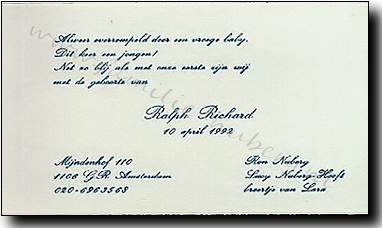 Alweer overrompeld door een vroege baby.
Dit keer een jongen!
Net zo blij als met onze eerste zijn wij
met de geboorte van
Ralph Richard
10 april 1992
Mijndenhof 110
1106 GR Amsterdam
020-6963568
Ron Nuberg
Lucy Nuberg-Hooft
broertje van Lara